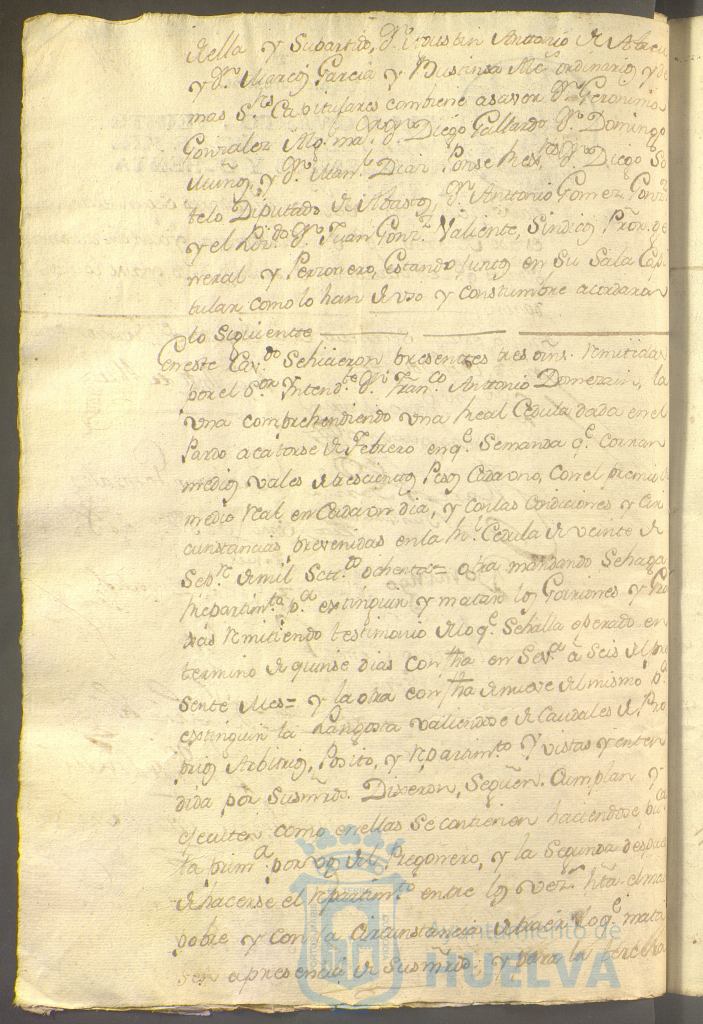 della y Supartido, Dn. Agustin Antonio de
y Dn. Marcos Garcia y Bustinsa Alces. ordinarios y de
mas Sres. Capitulares combiene asavor Dn. Geronimo
Gonzalez Alg. mor. Dn. Diego Gallardo, Dn. Domingo
Muñoz, y Dn. Manl. Diaz Ponse Rexres. Dn. Diego
telo Diputado de Abastos, Dn. Antonio Gomez
y el Dn. Juan Gonz. Valiente, Sindicos Pror. ge
neral y Perzonero, estando juntos en su Sala Capi
tular como lo han de uso y constumbre acordaron
lo siguiente
En este Cavdo. Sehicieron presentes tres orns. remitidas
por el Sor. Yntendte. Dn. Franco. Antonio Domezain, la
una comprehendiendo una Real Cedula dada en el
Pardo a catorse de Febrero en qe. Semanda qe. corran
medios vales de trescientos Pesos Cada uno, con el premio de
medio Real en Cada un dia, y con las Condiciones y Cir
cunstancias prevenidas en la Rl. Cedula de veinte de
Sepre. de mil Settos. ochenta= otra mandando Sehaga
Repartimto. pa. extinguir y matar los Gorriones y
remitiendo testimonio delo qe. Sehalla operado en
termino de quinse dias con fha en Seva. à Seis del pre
sente Mes= y la otra con fha de nueve del mismo pa.
extinguir la Langosta valiendose de Caudales de Pro
prios Arbitrios, Posito, y repartimto. Y vistas y enten
dida por Susmrds. Dixeron, Seguen. Cumplan y
executen como en ellas se contienen haciendose pu
ta prima. por voz del Pregonero, y la Segunda despues
de hacerse el repartimto. entre los vez. hta. el mas
pobre y con la Circunstancia de traer lo qe. mata
sen apresencia de Susmrds. y para la tercera
Ayuntamiento de
HUELVA